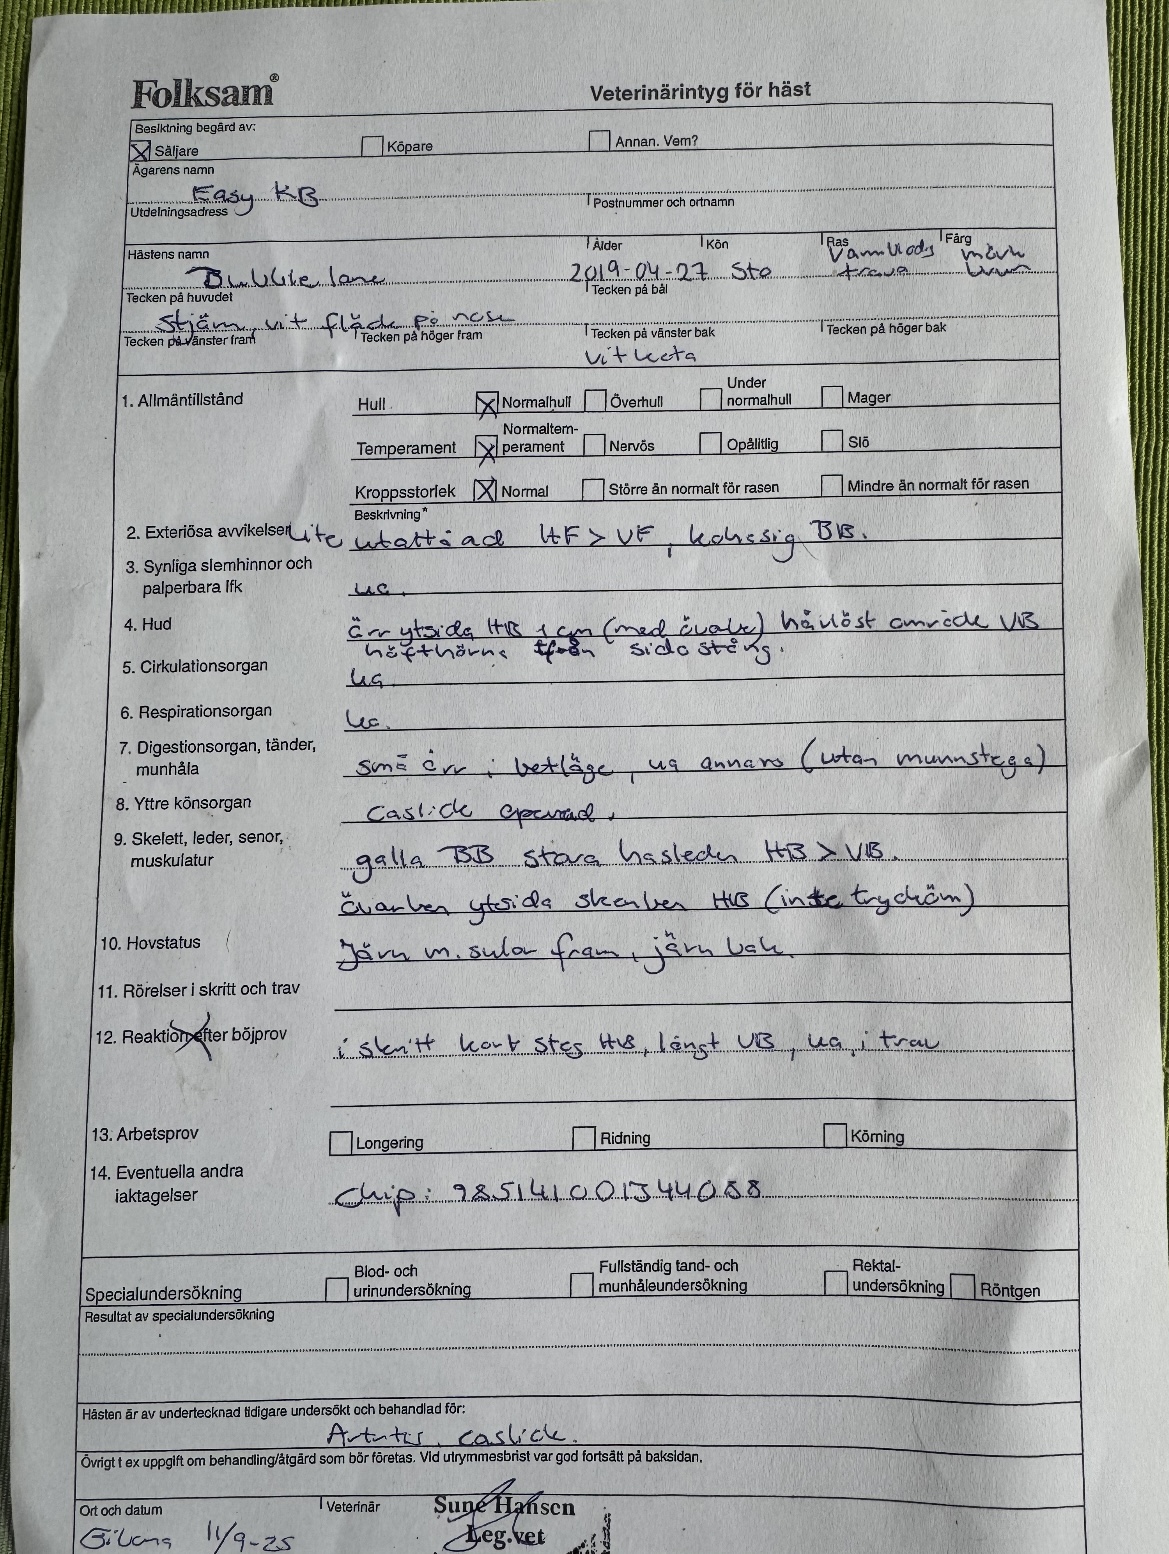 Folksam®
Veterinärintyg för häst
Besiktning begärd av:
Säljare Köpare Annan. Vem?
Ägarens namn
Easy KB
Utdelningsadress Postnummer och ortnamn
Hästens namn Ålder Kön Ras Färg
2019-04-27 Sto Varmblods trava mörk brun
Tecken på huvudet Tecken på bål
Stjärn, vit fläck på nose
Tecken på vänster fram Tecken på höger fram Tecken på vänster bak Tecken på höger bak
vit kota
1. Allmäntillstånd Hull Normalhull Överhull Under normalhull Mager
Temperament Normaltemperament Nervös Opålitlig Slö
Kroppsstorlek Normal Större än normalt för rasen Mindre än normalt för rasen
Beskrivning*
2. Exteriösa avvikelser Lite utåttåad HF > VF, kohasig BB.
3. Synliga slemhinnor och
palperbara lfk ua.
4. Hud ärr ytsida HB 1 cm (med övalk) hårlöst område VB
höfthörna från sidostång.
5. Cirkulationsorgan ua
6. Respirationsorgan ua.
7. Digestionsorgan, tänder,
munhåla små ärr i betläge, ua annars (utan munnstega)
8. Yttre könsorgan Caslick opererad.
9. Skelett, leder, senor,
muskulatur galla BB stora hasleden HB > VB.
överben ytsida skenben HB (inte trycköm)
10. Hovstatus Järn m. sulor fram, järn bak.
11. Rörelser i skritt och trav
12. Reaktion efter böjprov i skritt kort steg HB, långt VB, ua i trav
13. Arbetsprov Longering Ridning Körning
14. Eventuella andra
iaktagelser Chip: 985141001344088
Specialundersökning Blod- och urinundersökning Fullständig tand- och munhåleundersökning Rektalundersökning Röntgen
Resultat av specialundersökning
Hästen är av undertecknad tidigare undersökt och behandlad för:
Artrit, caslick.
Övrigt t ex uppgift om behandling/åtgärd som bör företas. Vid utrymmesbrist var god fortsätt på baksidan.
Ort och datum Veterinär Sune Hansen
11/9-25 Leg.vet